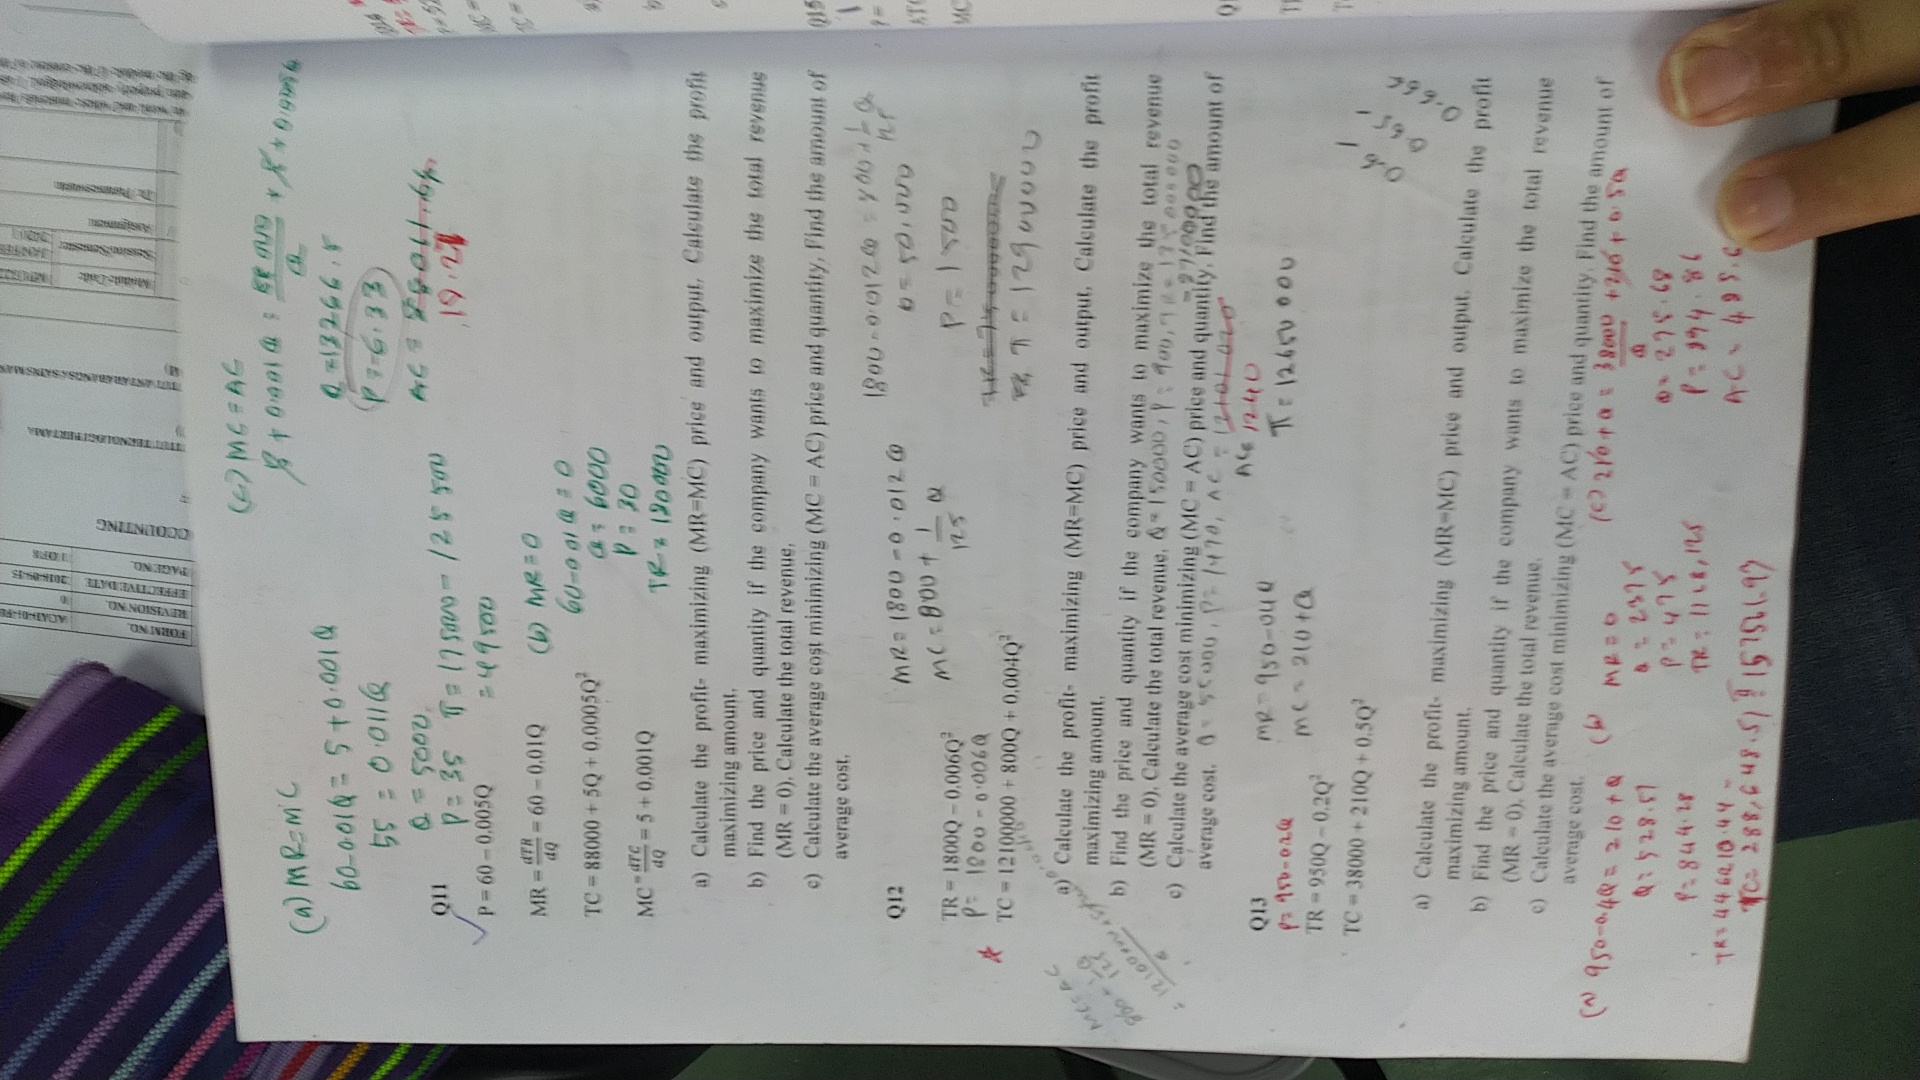 FORM NO.
REVISION NO.
EFFECTIVE DATE 2018-09-15
PAGE NO.
(a) MR=MC
60-0.01Q = 5+0.001Q
55 = 0.011Q
Q = 5000
P = 35 π = 175000 - 125500
= 49500
(c) MC = AC
Q = 13266.5
P = -6.33
AC = 88011.66
19.27
Q11
P = 60 – 0.005Q
MR = dTR/dQ = 60 – 0.01Q
TC = 88000 + 5Q + 0.0005Q²
MC = dTC/dQ = 5 + 0.001Q
(b) MR = 0
60-0.01Q = 0
Q = 6000
P = 30
TR = 180000
a) Calculate the profit- maximizing (MR=MC) price and output. Calculate the profit
maximizing amount.
b) Find the price and quantity if the company wants to maximize the total revenue
(MR = 0). Calculate the total revenue.
c) Calculate the average cost minimizing (MC = AC) price and quantity. Find the amount of
average cost.
Q12
MR = 1800 - 0.012Q
MC = 800 + 1/125 Q
1800 - 0.012Q = 800 + 1/125 Q
Q = 50,000
P = 1500
π = 12900000
TR = 1800Q – 0.006Q²
P = 1800 - 0.006Q
TC = 12100000 + 800Q + 0.004Q²
MC = AC
800 + 1/125 Q
a) Calculate the profit- maximizing (MR=MC) price and output. Calculate the profit
maximizing amount.
b) Find the price and quantity if the company wants to maximize the total revenue
(MR = 0). Calculate the total revenue. Q = 150000, P = 900, TR = 135000000
c) Calculate the average cost minimizing (MC = AC) price and quantity. Find the amount of
average cost. Q = 55000, P = 1470, AC = 12101020
AC = 1240
π = 12650000
Q13
P = 950-0.2Q
MR = 950-0.4Q
MC = 210+Q
TR = 950Q – 0.2Q²
TC = 38000 + 210Q + 0.5Q²
0.6-
0.65-
0.666
a) Calculate the profit- maximizing (MR=MC) price and output. Calculate the profit
maximizing amount.
b) Find the price and quantity if the company wants to maximize the total revenue
(MR = 0). Calculate the total revenue.
c) Calculate the average cost minimizing (MC = AC) price and quantity. Find the amount of
average cost.
(a) 950-0.4Q = 210+Q
Q = 528.57
P = 844.28
TR = 446210.44
TC = 288,648.51 π = 157561.93
(b)
MR = 0
Q = 2375
P = 475
TR = 1128,125
(c) 210 + Q = 38000/Q + 210 + 0.5Q
Q = 275.68
P = 894.86
AC = 485.6